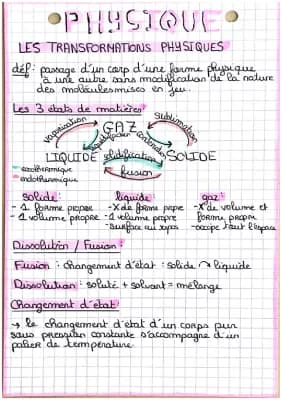 PHYSIQUE
LES TRANSFORMATIONS PHYSIQUES
déf : passage d'un corp d'une forme physique
à une autre sans modification de la nature
des molécules mises en jeu.
Les 3 états de matières :
Vaporisation
GAZ
Sublimation
liquéfaction
LIQUIDE
solidification
SOLIDE
fusion
exothermique
endothermique
solide : liquide : gaz :
- 1 forme propre - X de forme propre - X de volume et
- 1 volume propre - 1 volume propre forme propre
- surface au repos - occupe tout l'espace
Dissolution / Fusion :
Fusion : changement d'état : solide ↷ liquide
Dissolution : soluté + solvant = mélange
Changement d'état :
→ le changement d'état d'un corps pur
sous pression constante s'accompagne d'un
palier de température.